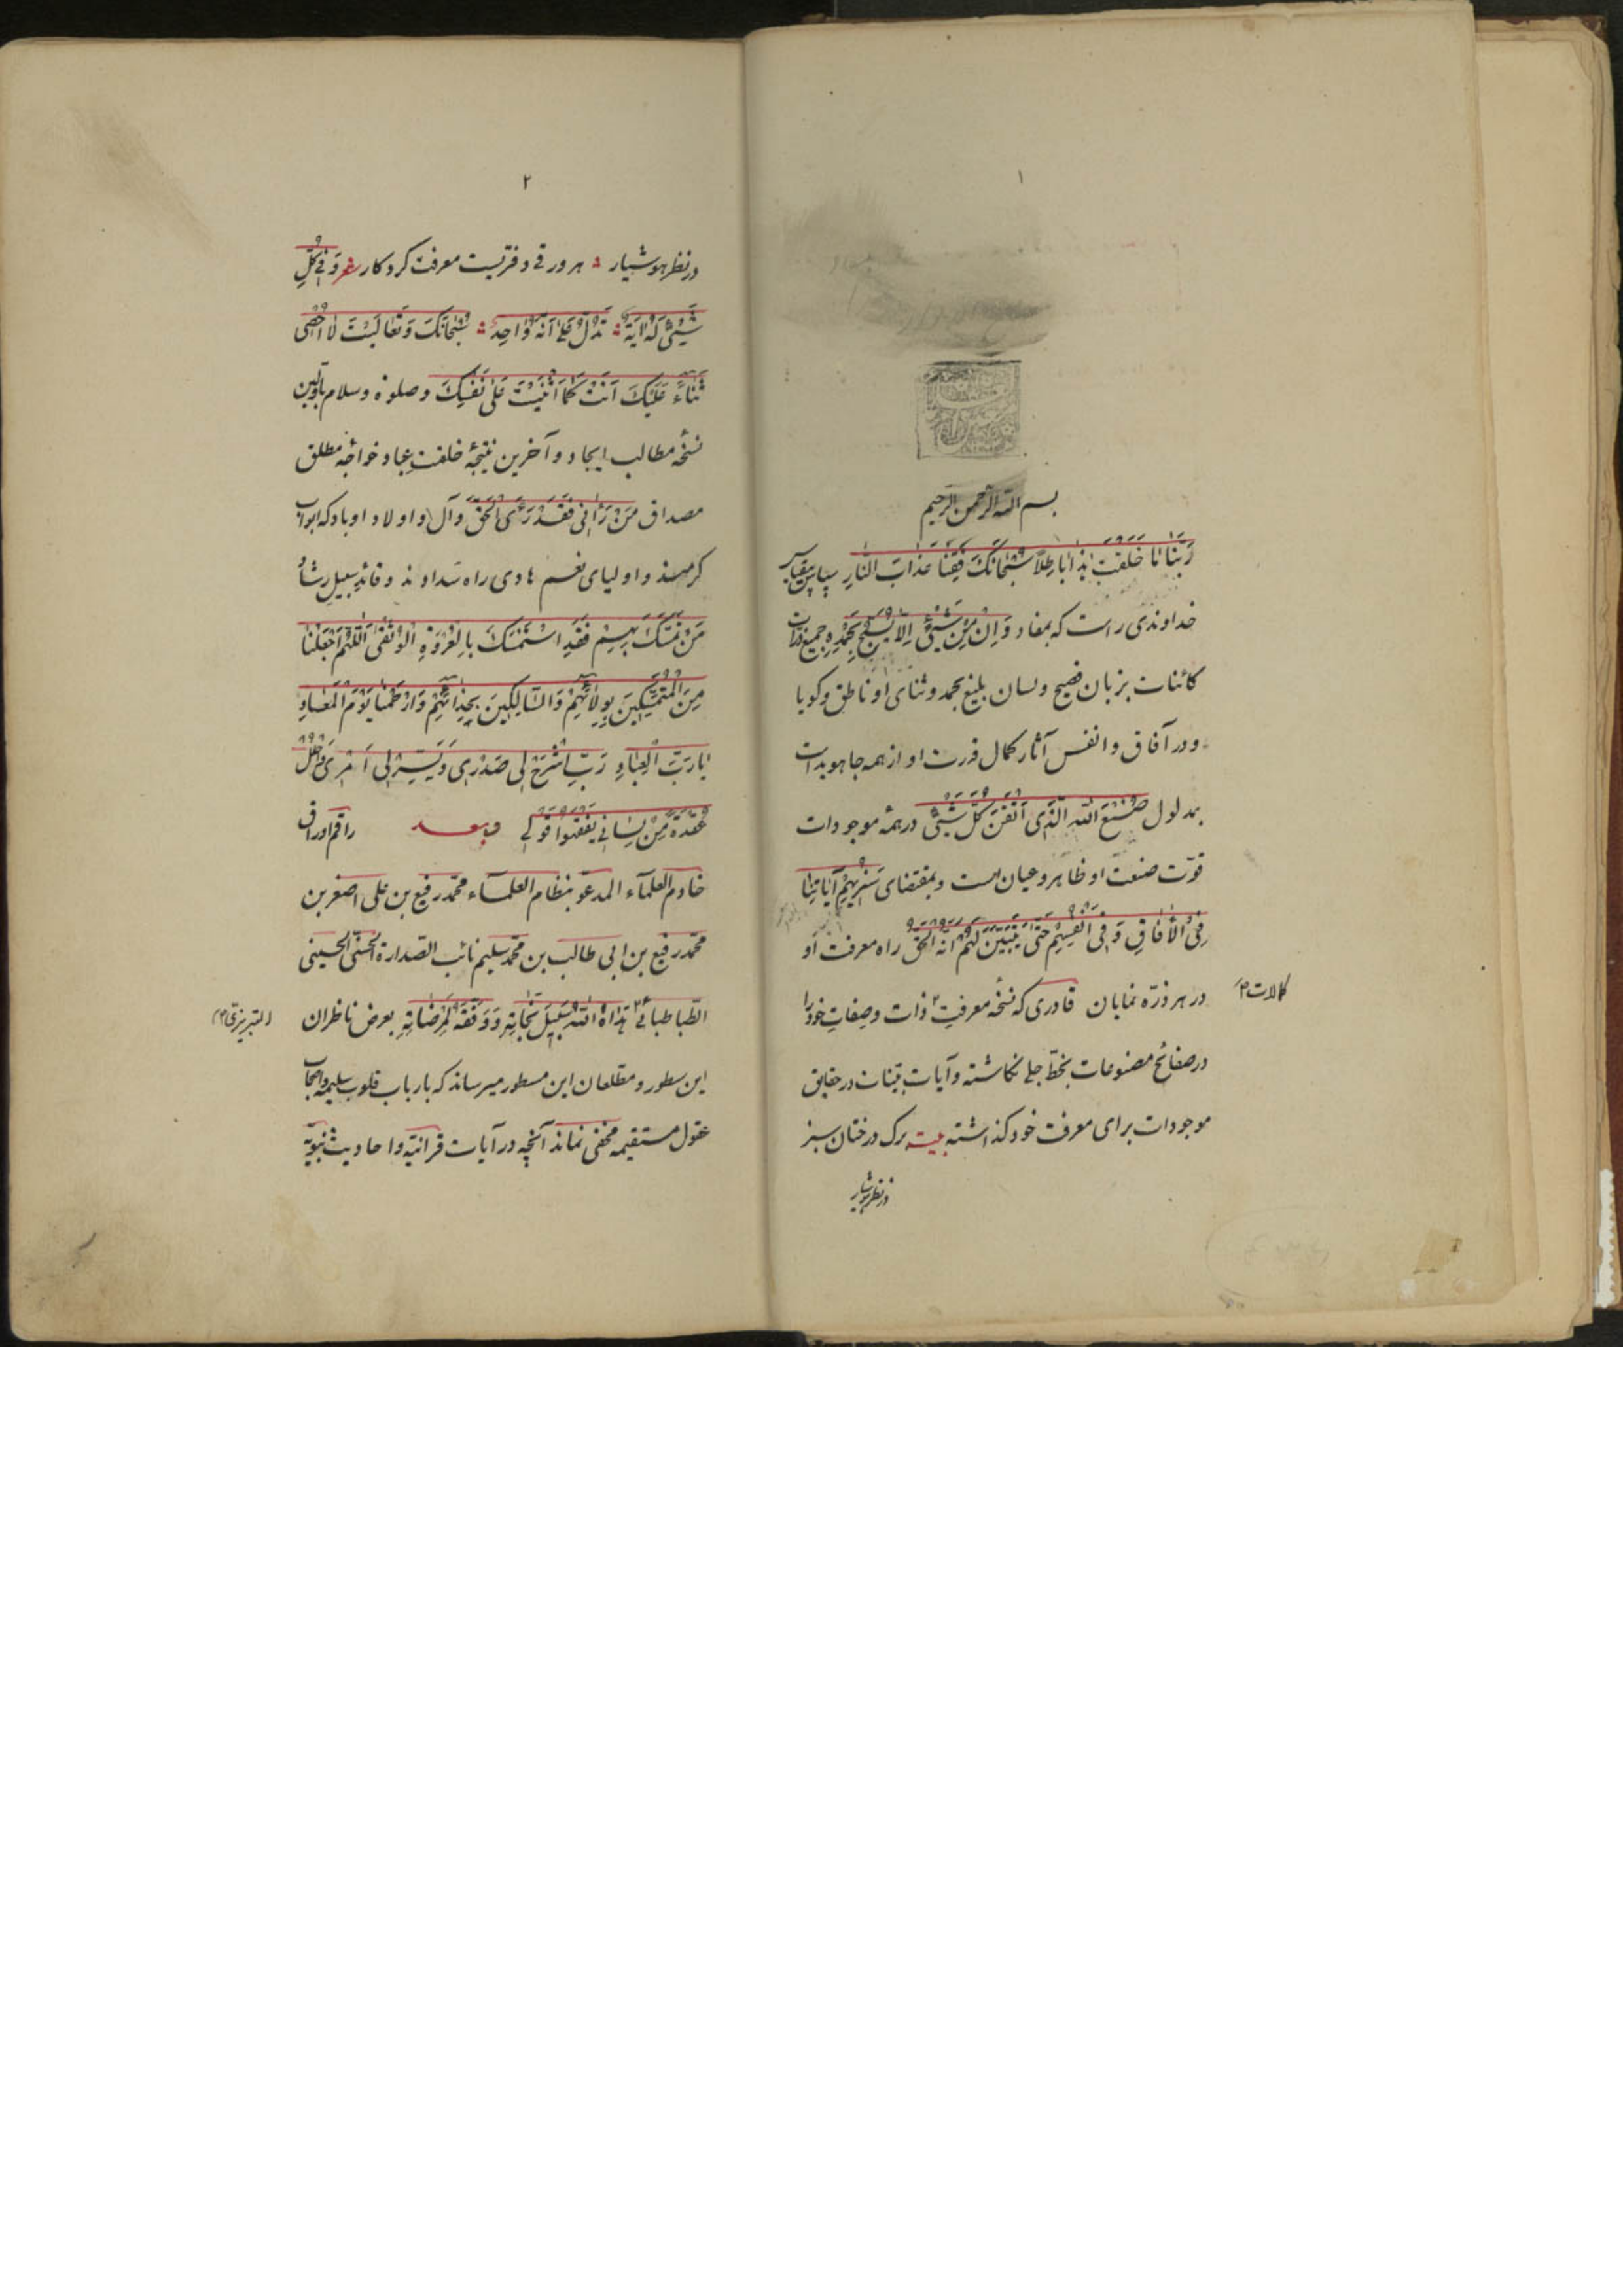 ١
بسم الله الرحمن الرحیم
رَبَّنَا مَا خَلَقْتَ هٰذَا بَاطِلًا سُبْحَانَكَ فَقِنَا عَذَابَ النَّارِ سپاس بیقیاس
خداوندی راست که بمفاد وَاِنْ مِنْ شَیْئٍ اِلَّا یُسَبِّحُ بِحَمْدِهِ جمیع ذرات
کائنات بزبان فصیح ولسان بلیغ بحمد وثنای او ناطق وکویا
ودر آفاق وانفس آثار کمال قدرت او از همه جا هویداست
بمدلول صُنْعَ اللهِ الَّذِی اَتْقَنَ کُلَّ شَیْئٍ درهمه موجودات
قوّت صنعت او ظاهر وعیان است وبمقتضای سَنُرِیهِمْ آیَاتِنَا
فِی الْآفَاقِ وَفِی اَنْفُسِهِمْ حَتّٰی یَتَبَیَّنَ لَهُمْ اَنَّهُ الْحَقُّ راه معرفت او
در هر ذرّه نمایان قادری که نسخه معرفت ۲ ذات وصفات خود را
کمالات ۲
در صفائح مصنوعات بخطّ جلی نکاشته وآیات بیّنات در حقایق
موجودات برای معرفت خود کذاشته بیت برک درختان سبز
در نظر هوشیار
٢
در نظر هوشیار هر ورقی دفتریست معرفت کردکار شعر وَفِی کُلِّ
شَیْئٍ لَهُ آیَةٌ تَدُلُّ عَلٰی اَنَّهُ وَاحِدٌ سُبْحَانَكَ وَتَعَالَیْتَ لَا اُحْصِی
ثَنَاءً عَلَیْكَ اَنْتَ کَمَا اَثْنَیْتَ عَلٰی نَفْسِكَ وصلوة وسلام باوّلین
نسخه مطالب ایجاد وآخرین نتیجهٔ خلقت عباد خواجه مطلق
مصداق مَنْ رَآنِی فَقَدْ رَءَی الْحَقَّ وآل واولاد او باد که ابواب
کرمند واولیای نعم هادی راه سداد وقائد سبیل رشاد
مَنْ تَمَسَّكَ بِهِمْ فَقَدِ اسْتَمْسَكَ بِالْعُرْوَةِ الْوُثْقٰی اَللّٰهُمَّ اجْعَلْنَا
مِنَ الْمُتَمَسِّکِینَ بِوِلَائِهِمْ وَالسَّالِکِینَ بِحِذَائِهِمْ وَارْحَمْنَا یَوْمَ الْمَعَادِ
یَا رَبَّ الْعِبَادِ رَبِّ اشْرَحْ لِی صَدْرِی وَیَسِّرْ لِی اَمْرِی وَاحْلُلْ
عُقْدَةً مِنْ لِسَانِی یَفْقَهُوا قَوْلِی وبعد راقم اوراق
خادم العلمآء المدعوّ بنظام العلمآء محمّد رفیع بن علی اصغر بن
محمّد رفیع بن ابی طالب بن محمّد سلیم نائب الصّدارة الحسنی الحسینی
الطّباطبائی ۲ هَدَاهُ اللهُ سَبِیلَ نَجَاتِهِ وَوَفَّقَهُ لِمَرْضَاتِهِ بعرض ناظران
التبریزیّ ۲
این سطور ومطّلعان این مسطور میرساند که بارباب قلوب سلیمه واصحاب
عقول مستقیمه مخفی نماند آنچه در آیات قرانیّه واحادیث نبویّه